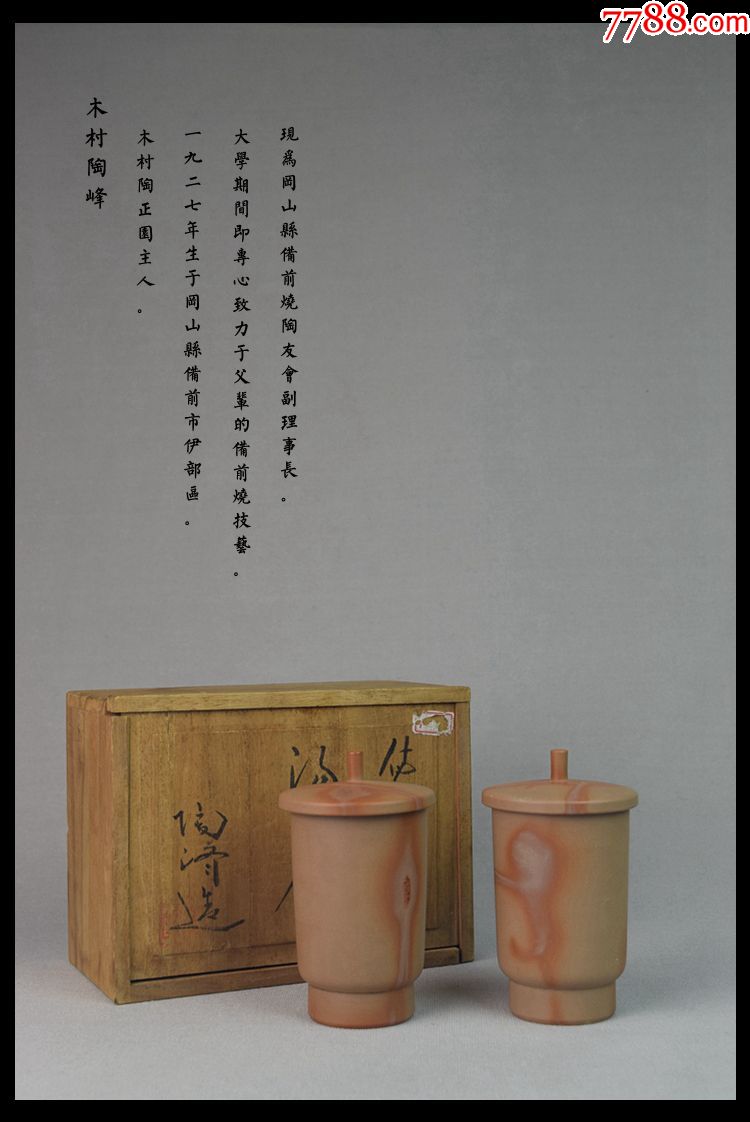 7788.com
木村陶峰
木村陶正園主人。
一九二七年生于岡山縣備前市伊部區。
大學期間即專心致力于父輩的備前燒技藝。
現爲岡山縣備前燒陶友會副理事長。
湯
陶峰造